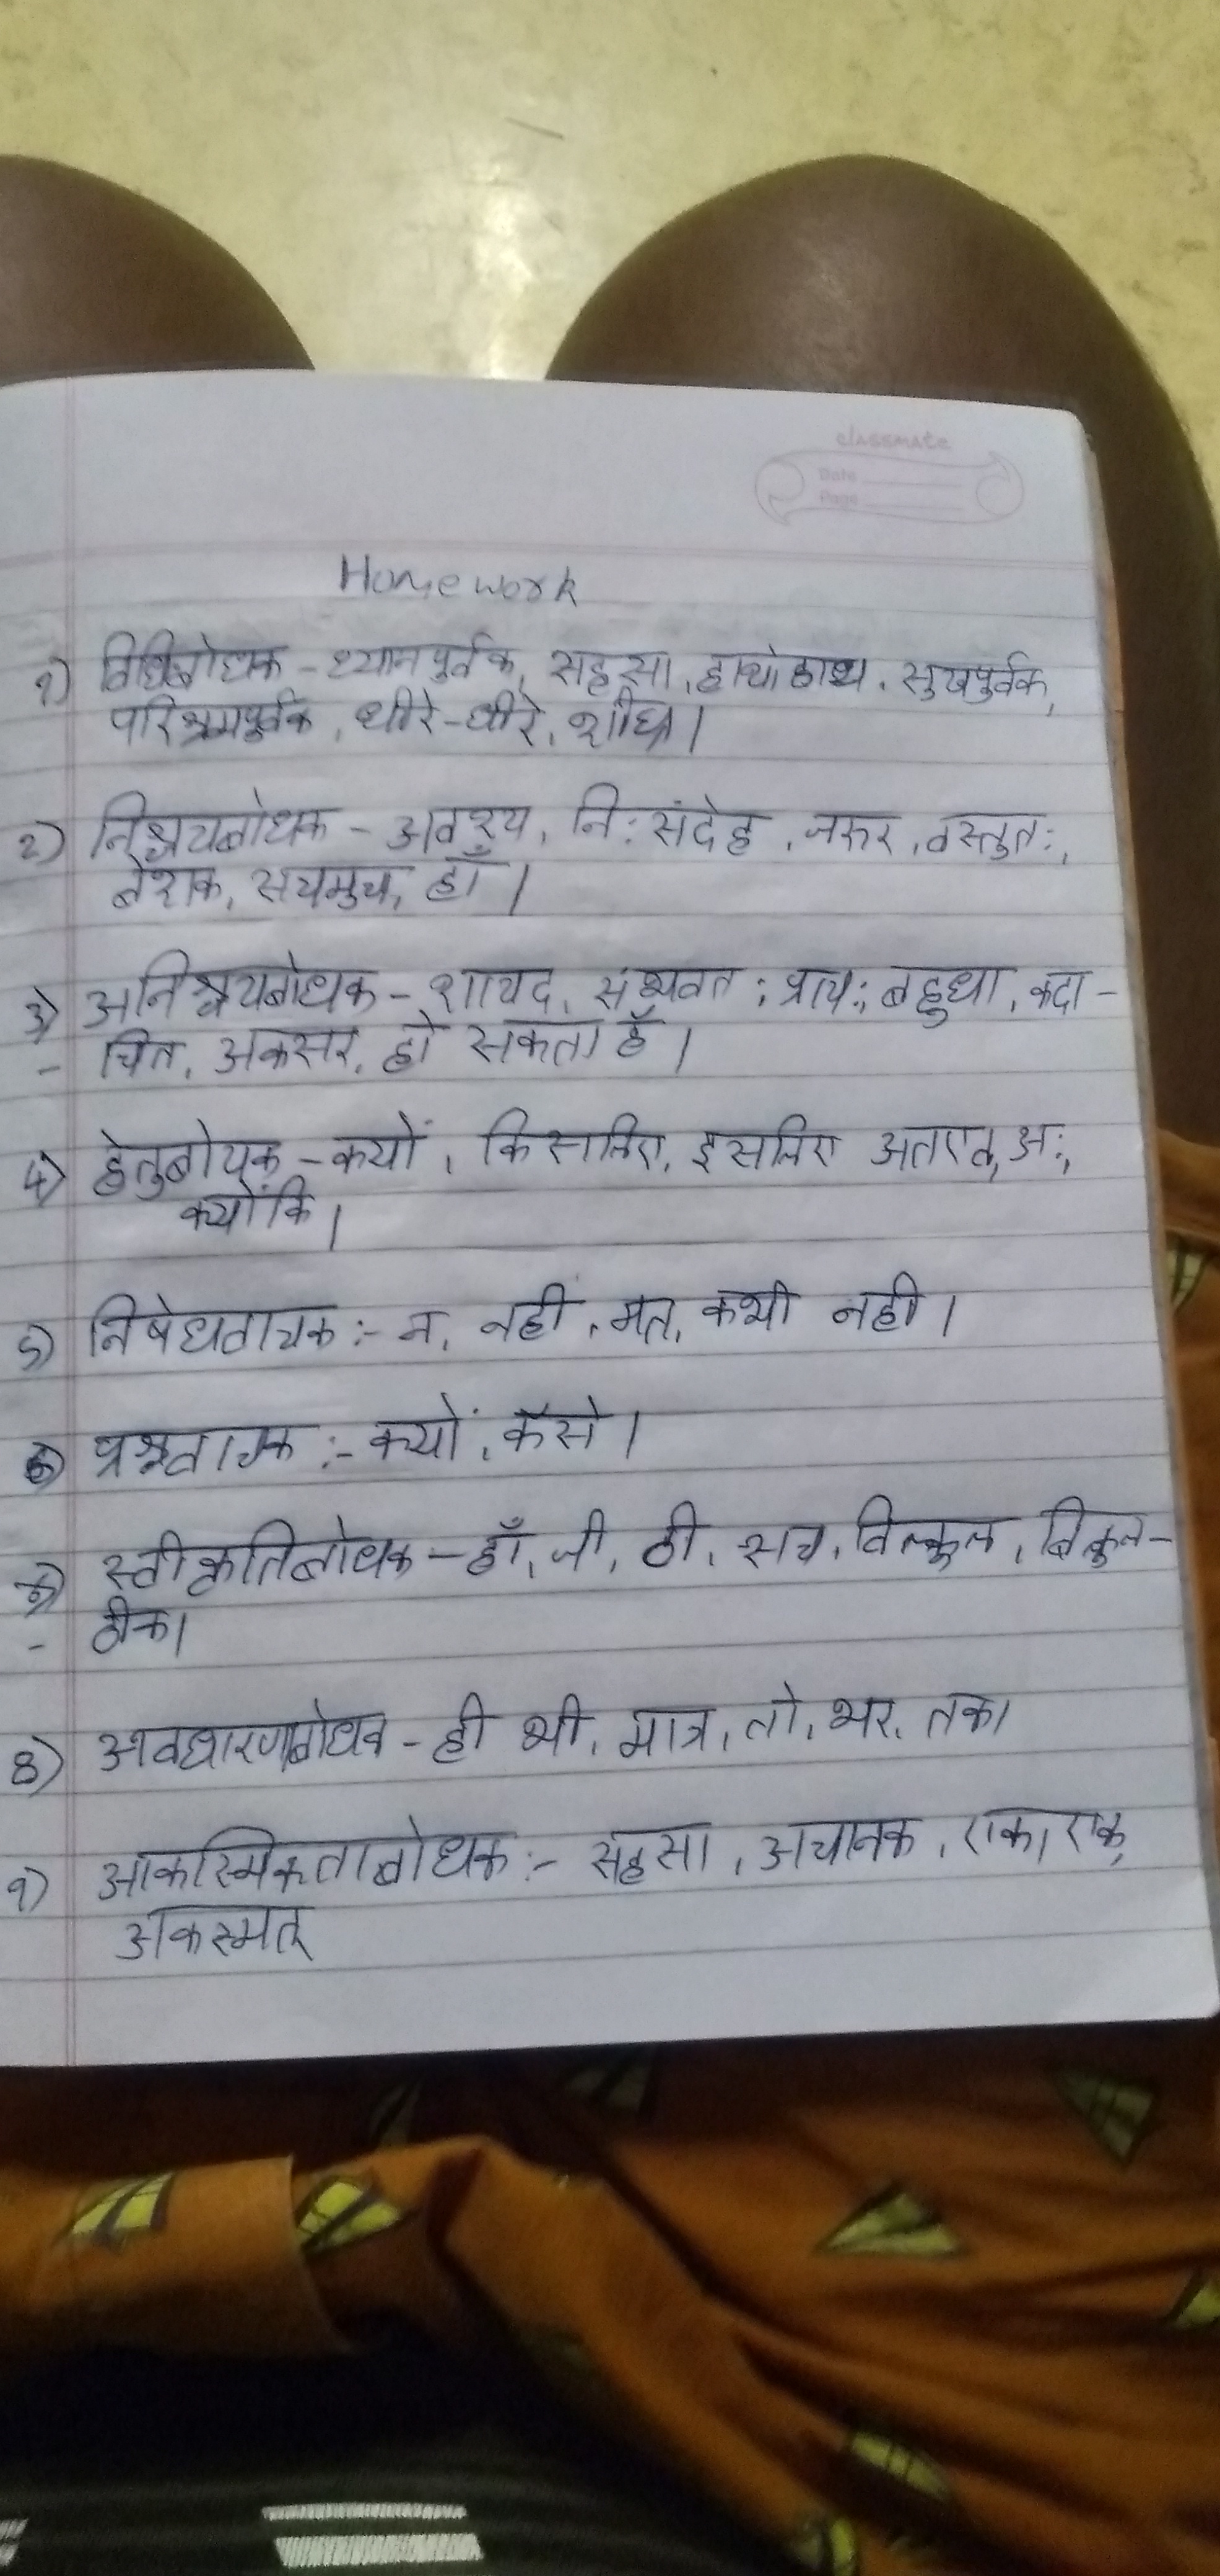 classmate
Date
Page
Homework
१) विधिबोधक - ध्यानपुर्वक, सहसा, हाथोहाथ, सुखपुर्वक,
परिश्रमपुर्वक, धीरे-धीरे, शीघ्र।
२) निश्चयबोधक - अवश्य, नि:संदेह, जरुर, वस्तुत:,
बेशक, सचमुच, हाँ।
३) अनिश्चयबोधक - शायद, संभवत: प्राय:, बहुधा, कदा-
- चित, अकसर, हो सकता हैं।
4) हेतुबोधक - क्यों, किसलिए, इसलिए अतएव, अ:,
क्योंकि।
5) निषेधवाचक :- न, नहीं, मत, कभी नही।
6) प्रश्नवाचक :- क्यों, कैसे।
स्वीकृतिबोधक - हाँ, जी, ठी, सच, विल्कुल, बिल्कुल-
- ठीक।
8) अवधारणबोधक - ही भी, मात्र, तो, भर, तक।
९) आकस्मिकताबोधक :- सहसा, अचानक, एकाएक,
अकस्मत